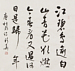 江碧鳥逾白
山青花欲然
今春看又過何
日是歸年